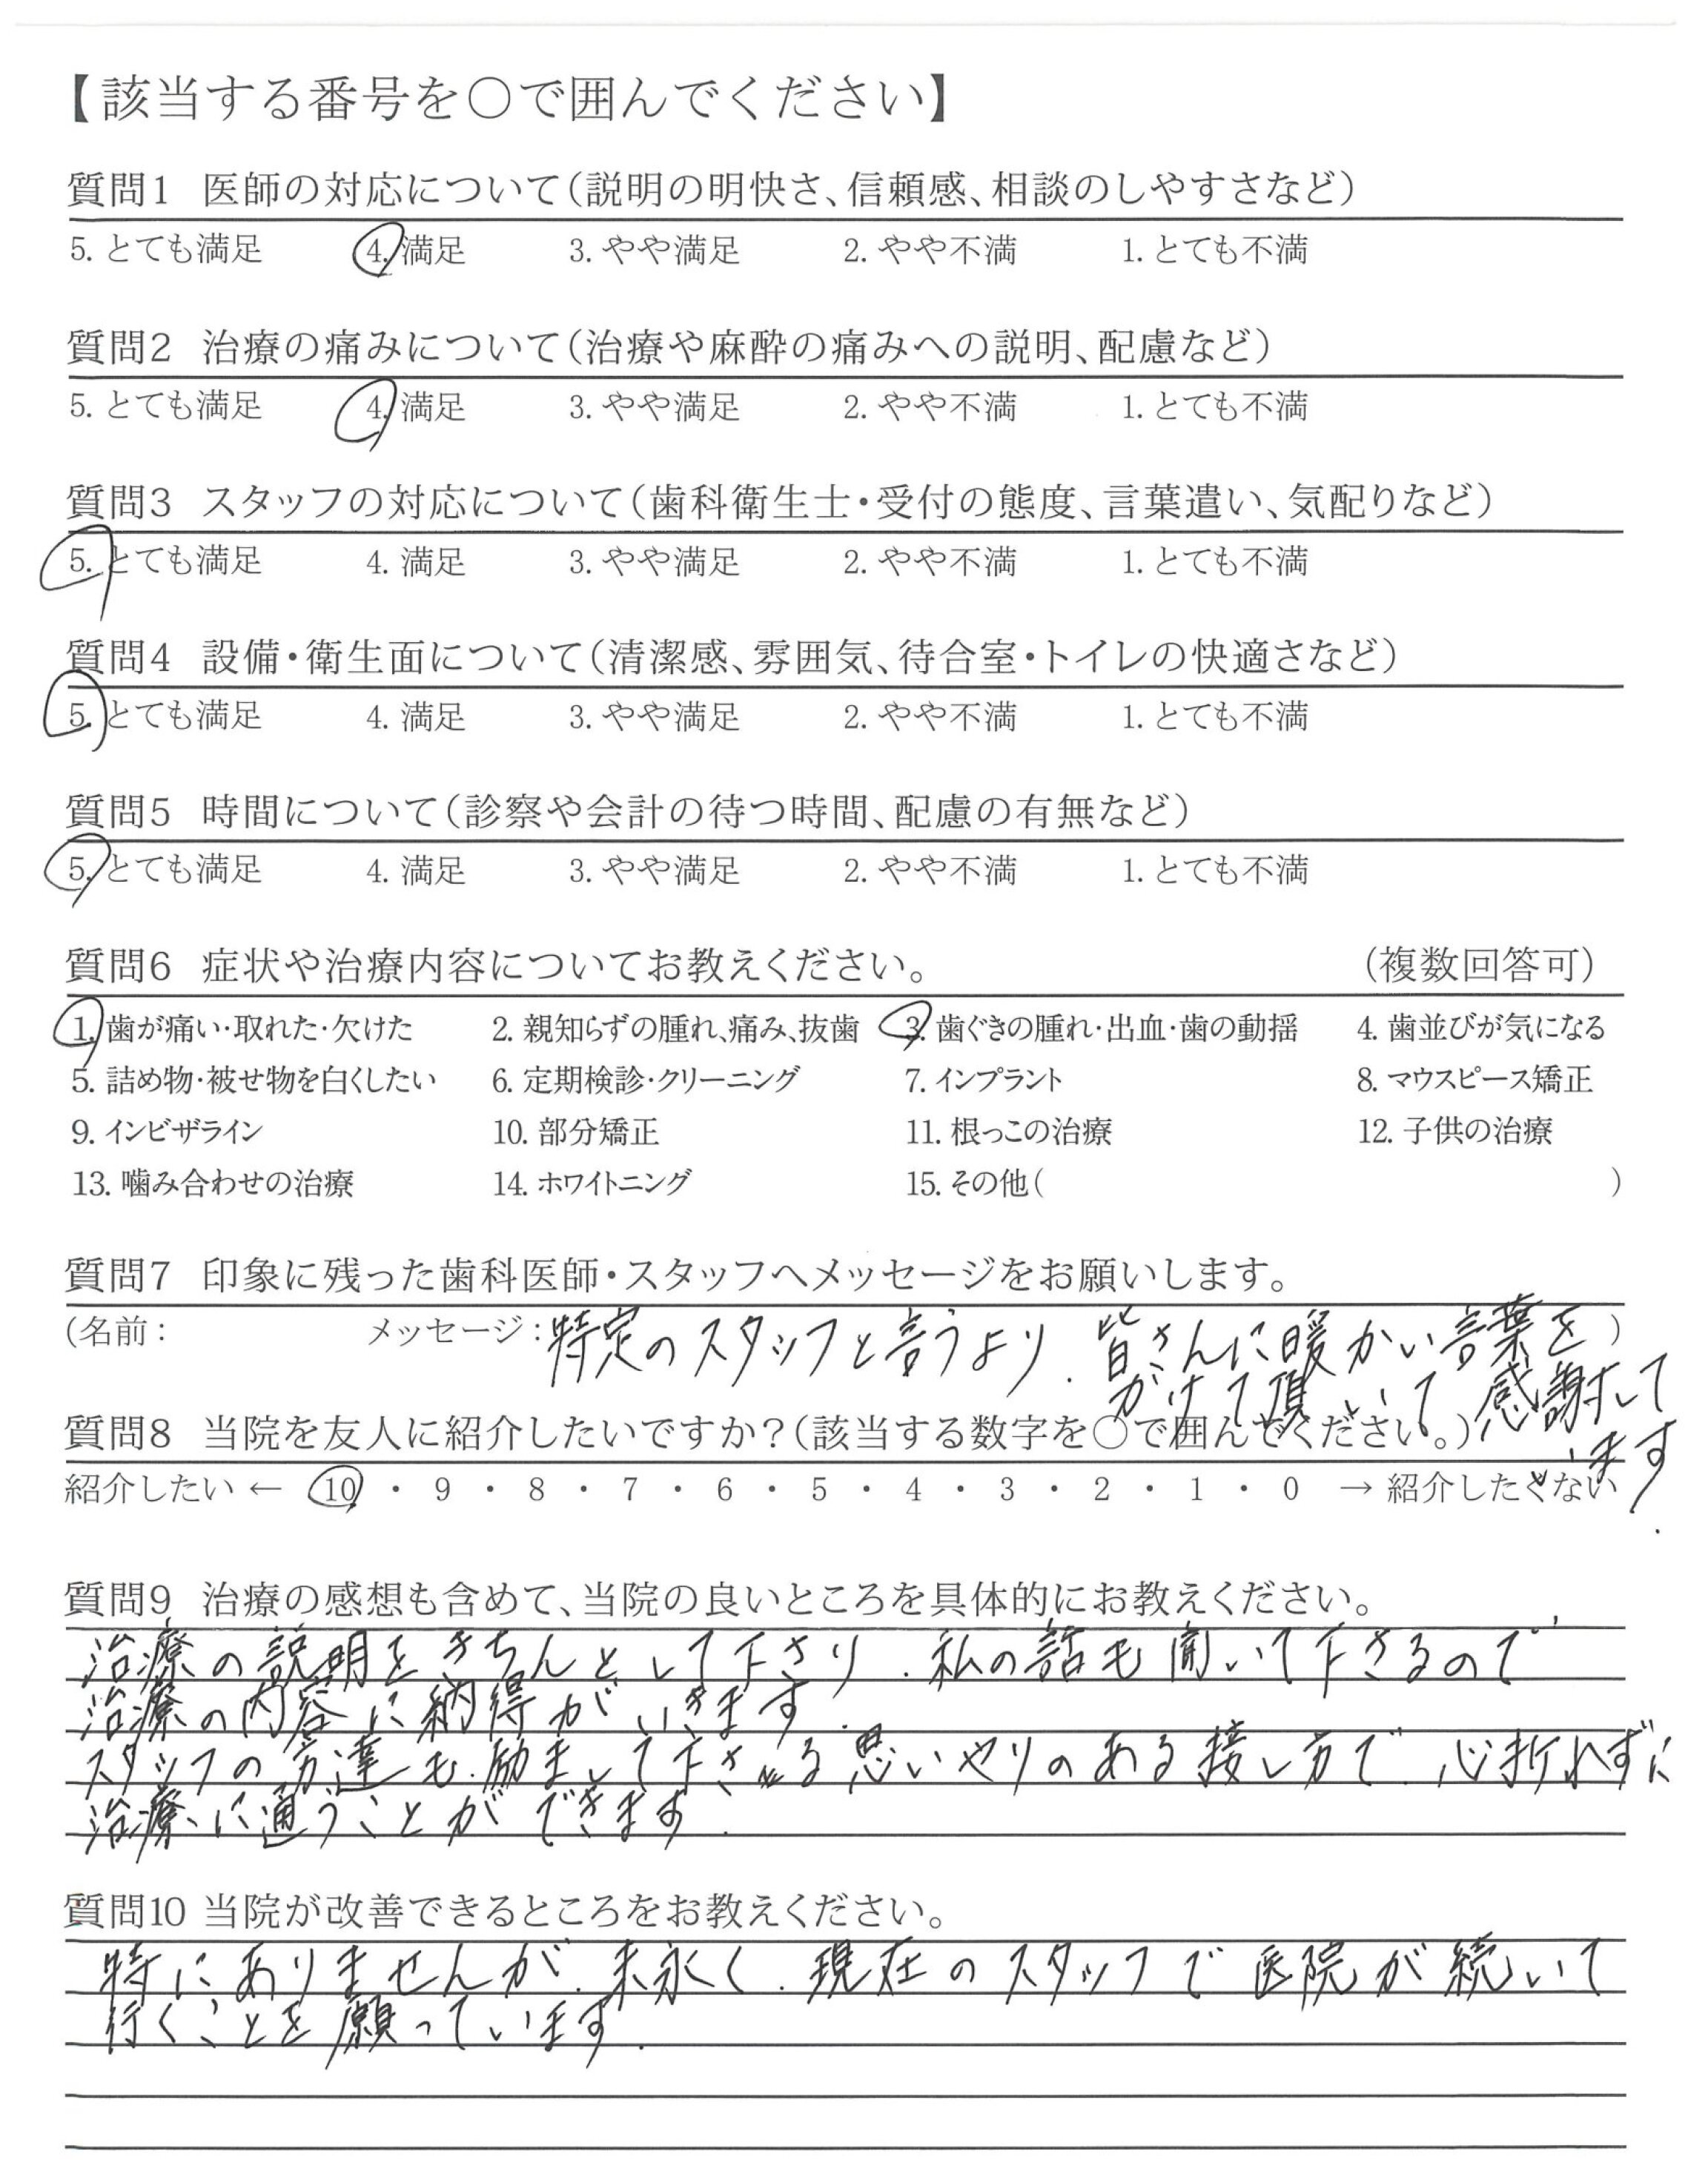 【該当する番号を〇で囲んでください】
質問1 医師の対応について(説明の明快さ、信頼感、相談のしやすさなど)
5. とても満足 4. 満足 3. やや満足 2. やや不満 1. とても不満
質問2 治療の痛みについて(治療や麻酔の痛みへの説明、配慮など)
5. とても満足 4. 満足 3. やや満足 2. やや不満 1. とても不満
質問3 スタッフの対応について(歯科衛生士・受付の態度、言葉遣い、気配りなど)
5. とても満足 4. 満足 3. やや満足 2. やや不満 1. とても不満
質問4 設備・衛生面について(清潔感、雰囲気、待合室・トイレの快適さなど)
5. とても満足 4. 満足 3. やや満足 2. やや不満 1. とても不満
質問5 時間について(診察や会計の待つ時間、配慮の有無など)
5. とても満足 4. 満足 3. やや満足 2. やや不満 1. とても不満
質問6 症状や治療内容についてお教えください。 (複数回答可)
1. 歯が痛い・取れた・欠けた 2. 親知らずの腫れ、痛み、抜歯 3. 歯ぐきの腫れ・出血・歯の動揺 4. 歯並びが気になる
5. 詰め物・被せ物を白くしたい 6. 定期検診・クリーニング 7. インプラント 8. マウスピース矯正
9. インビザライン 10. 部分矯正 11. 根っこの治療 12. 子供の治療
13. 噛み合わせの治療 14. ホワイトニング 15. その他( )
質問7 印象に残った歯科医師・スタッフへメッセージをお願いします。
(名前: メッセージ: 特定のスタッフと言うより、皆さんに暖かい言葉を )
がけて頂いて感謝して
います.
質問8 当院を友人に紹介したいですか?(該当する数字を〇で囲んでください。)
紹介したい ← 10 ・ 9 ・ 8 ・ 7 ・ 6 ・ 5 ・ 4 ・ 3 ・ 2 ・ 1 ・ 0 → 紹介したくない
質問9 治療の感想も含めて、当院の良いところを具体的にお教えください。
治療の説明をきちんとして下さり、私の話も聞いて下さるので
治療の内容に納得がいきます.
スタッフの方達も、励まして下さる思いやりのある接し方で、心折れずに
治療に通うことができます.
質問10 当院が改善できるところをお教えください。
特にありませんが、末永く、現在のスタッフで医院が続いて
行くことを願っています.